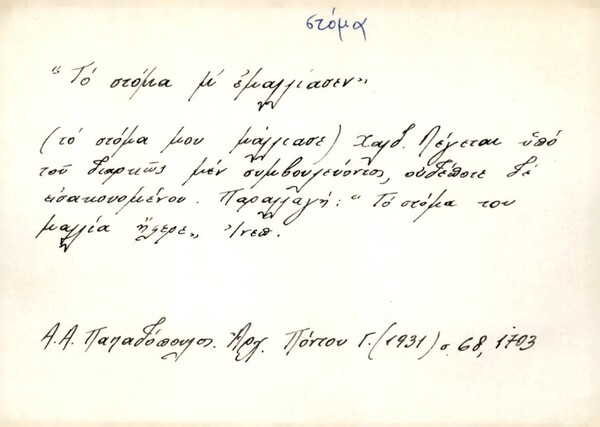 στόμα
"Τό στόμα μ' ἐμαλλίασεν"
(τό στόμα μου μάλλιασε) Χαλδ. Λέγεται ὑπό
τοῦ διαρκῶς μέν συμβουλεύοντος, οὐδέποτε δέ
εἰσακουομένου. Παραλλαγή: "Τό στόμα του
μαλλία ἤφερε" Ἰνεπ.
Α.Α. Παπαδόπουλος. Ἀρχ. Πόντου Γ. (1931) σ. 68, 1703